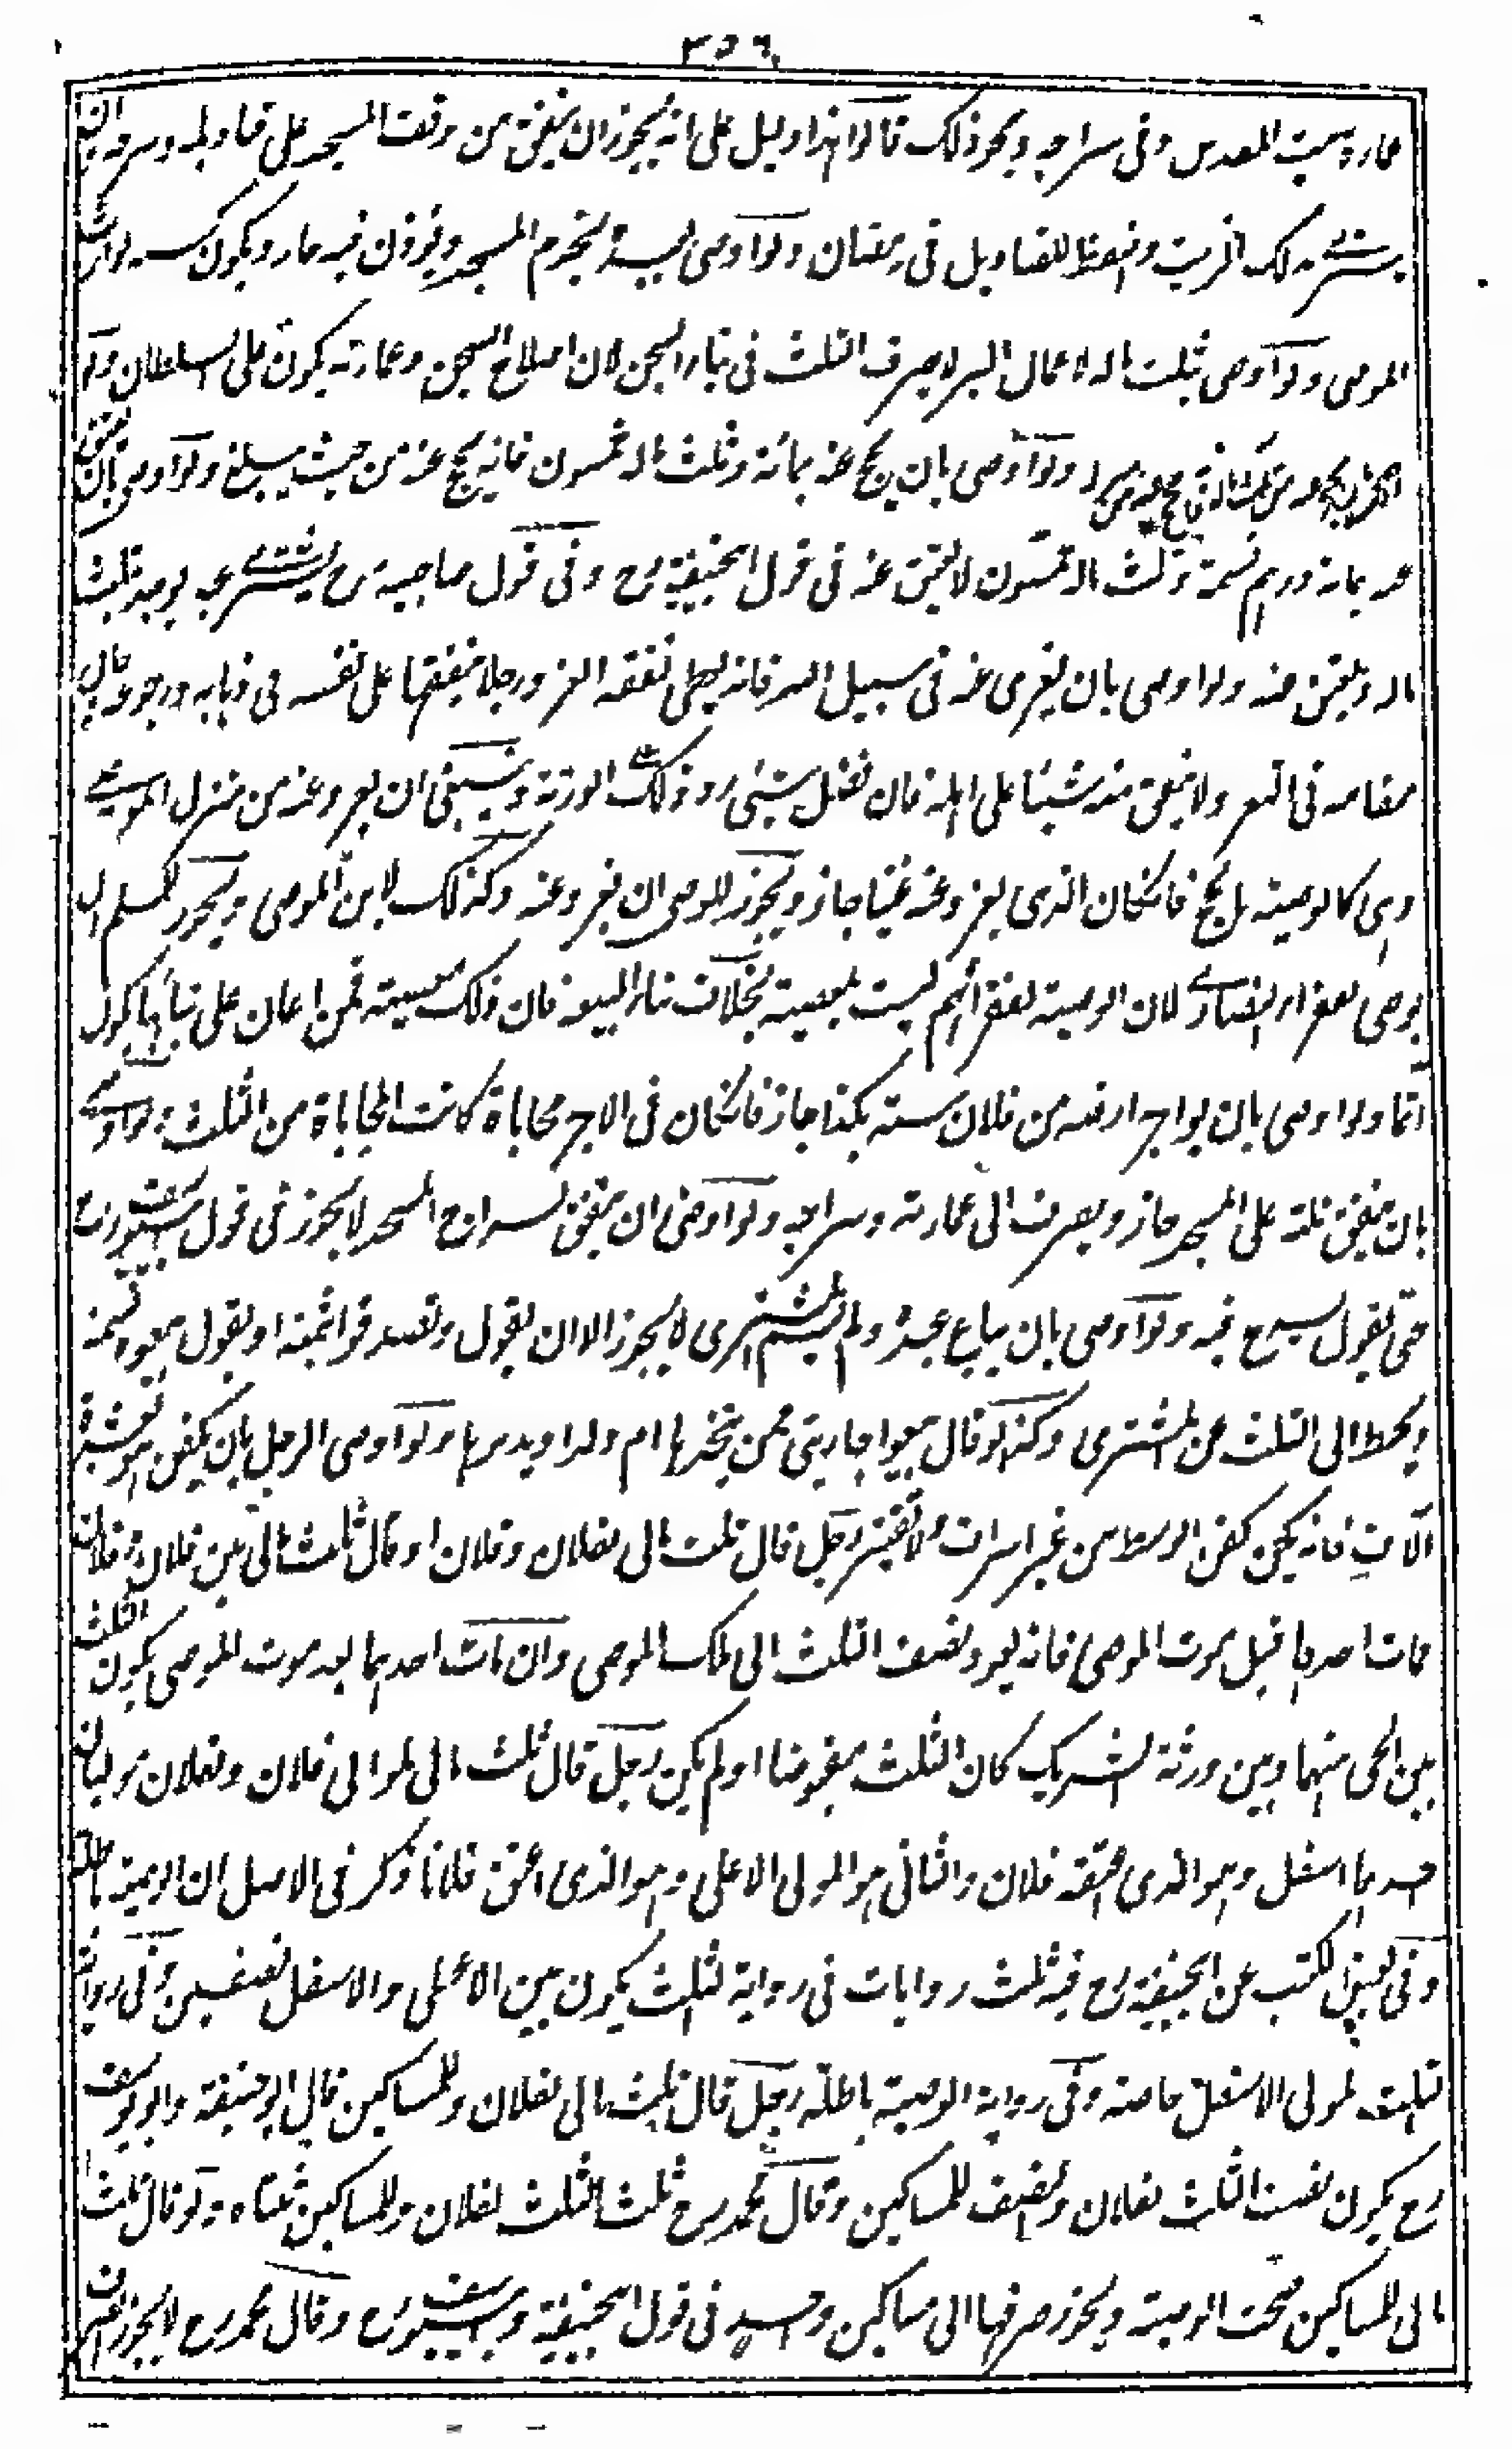 ٣٥٦
عمارة بيت المقدس وفى سراجه ونحو ذلك قالوا هذا دليل على انه يجوز ان ينفق من وقف المسجد على قناديله وسرجه وان
يشترى بذلك الزيت والنفط للقناديل فى رمضان ولو اوصى بعبده يخدم المسجد ويؤذن فيه جاز ويكون كسبه لوارث
الموصى ولو اوصى بثلث ماله لاعمال البر لا يصرف الثلث فى بناء السجن لان اصلاح السجن وعمارته يكون على السلطان ولو
ولو اوصى بان يحج عنه بمائة وثلث ماله خمسون فانه يحج عنه من حيث يبلغ ولو اوصى بان يعتق
عنه بمائة درهم نسمة وثلث ماله خمسون لا يعتق عنه فى قول ابيحنيفة رح وفى قول صاحبيه رح يشترى عبد يوجد بثلث
ماله ويعتق عنه ولو اوصى بان يغزى عنه فى سبيل الله فانه يعطى نفقة الغزو رجلا ينفقها على نفسه فى ذهابه ورجوعه وحال
مقامه فى الثغر ولا ينفق منه شيئا على اهله فان فضل شئ رد ذلك على الورثة وينبغى ان يغزو عنه من منزل الموصى
وهى كالوصية بالحج فانكان الذى يغزو عنه غنيا جاز ويجوز للموصى ان يغزو عنه وكذلك لابن الموصى ويجوز للمسلم ان
يوصى لفقراء النصارى لان الوصية لفقرائهم ليست بمعصية بخلاف بناء البيعة فان ذلك معصية فمن اعان على بنائها يكون
آثما ولو اوصى بان يواجر ارضه من فلان سنة بكذا جاز فانكان فى الاجر محاباة كانت المحاباة من الثلث ولو اوصى
بان ينفق ثلثه على المسجد جاز ويصرف الى عمارته وسراجه ولو اوصى ان ينفق لسراج المسجد لا يجوز فى قول ابييوسف رح
حتى يقول يسرج فيه ولو اوصى بان يباع عبده ولم يسم المشترى لا يجوز الا ان يقول وتصدقوا بثمنه او يقول بيعوه نسمة
ويحط الى الثلث عن المشترى وكذا لو قال بيعوا جاريتى ممن يتخذها ام ولد او يدبرها ولو اوصى الرجل بان يكفن هو بعشرة
آلاف فانه يكفن كفن الوسط من غير اسراف ولا تقتير رجل قال ثلث مالى لفلان وفلان او قال ثلث مالى بين فلان وفلان
فمات احدهما قبل موت الموصى فانه يعود نصف الثلث الى ملك الموصى وان مات احدهما بعد موت الموصى يكون الثلث
بين الحى منهما وبين ورثة الشريك كان الثلث مقبوضا او لم يكن رجل قال ثلث مالى لموالى فلان ولفلان موليان
احدهما اسفل وهو الذى اعتقه فلان والثانى هو المولى الاعلى وهو الذى اعتق فلانا ذكر فى الاصل ان الوصية باطلة
وفى بعض الكتب عن ابيحنيفة رح فيه ثلث روايات فى رواية الثلث يكون بين الاعلى والاسفل نصفين وفى رواية
الثلث لمولى الاسفل خاصة وفى رواية الوصية باطلة رجل قال ثلث مالى لفلان وللمساكين قال ابو حنيفة وابو يوسف
رح يكون نصف الثلث لفلان ونصف للمساكين وقال محمد رح ثلث الثلث لفلان وللمساكين ثلثاه ولو قال ثلث
مالى للمساكين صحت الوصية ويجوز صرفها الى مساكين واحد فى قول ابيحنيفة وابييوسف رح وقال محمد رح لا يجوز